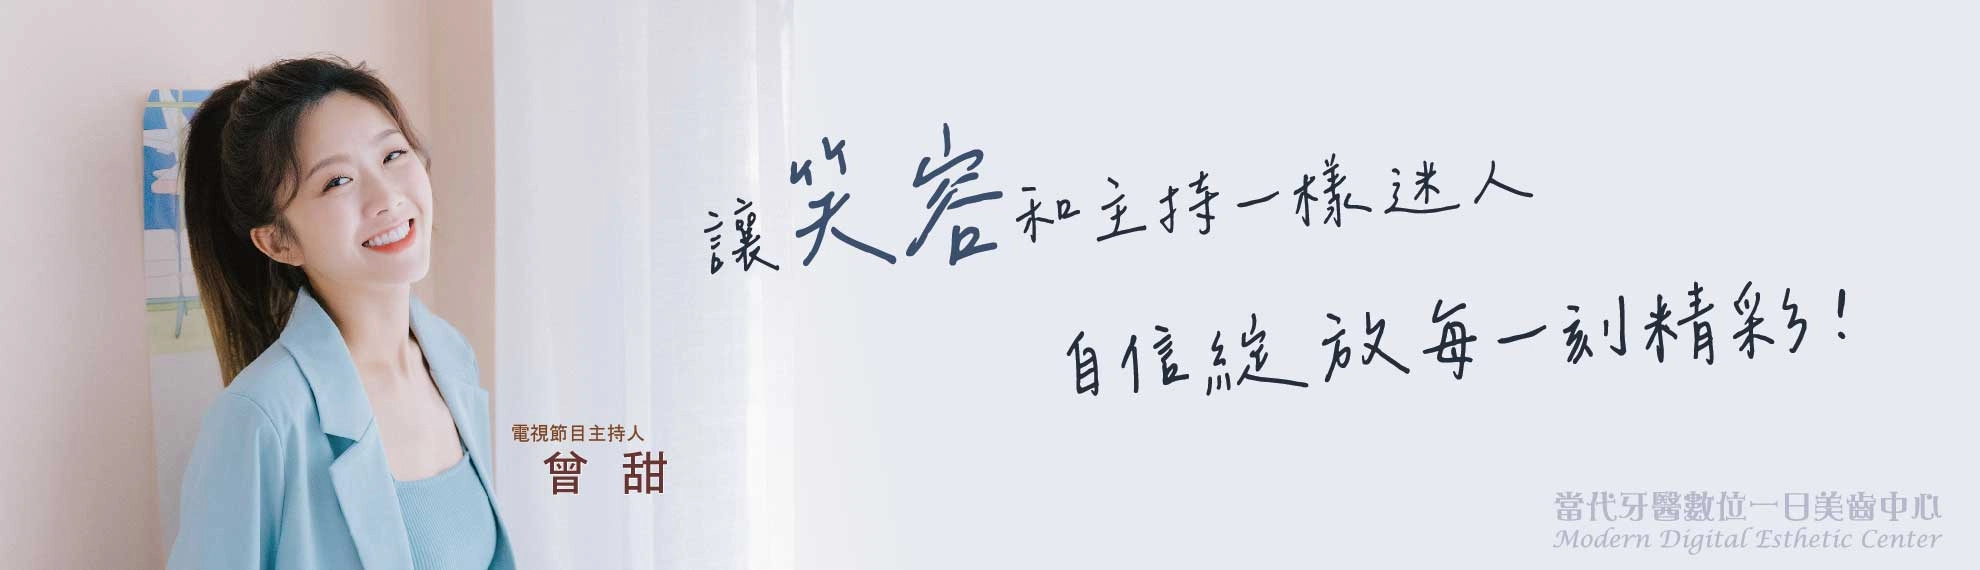 讓笑容和主持一樣迷人
自信綻放每一刻精彩!
電視節目主持人
曾 甜
當代牙醫數位一日美齒中心
Modern Digital Esthetic Center